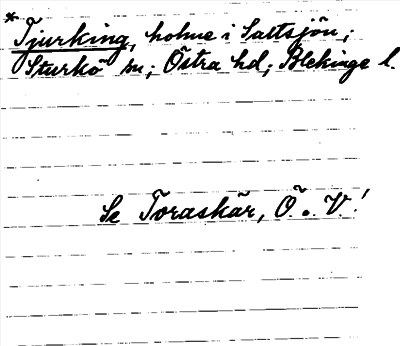 *Tjurking, holme i Saltsjön;
Sturkö sn; Östra hd; Blekinge l.
Se Toraskär, Ö. o. V.!